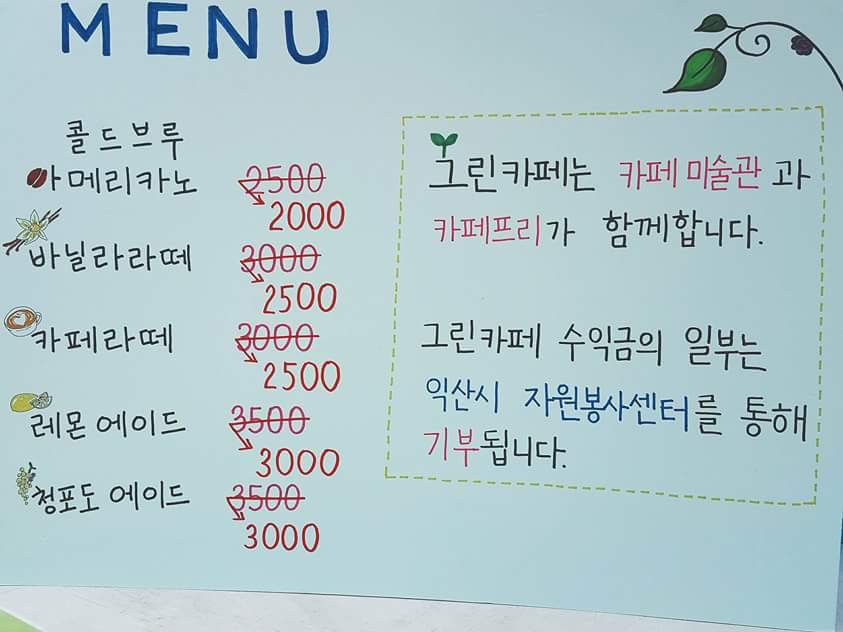 MENU
콜드브루
아메리카노 2500
2000
바닐라라떼 3000
2500
카페라떼 3000
2500
레몬에이드 3500
3000
청포도에이드 3500
3000
그린카페는 카페미술관과
카페프리가 함께합니다.
그린카페 수익금의 일부는
익산시 자원봉사센터를 통해
기부됩니다.